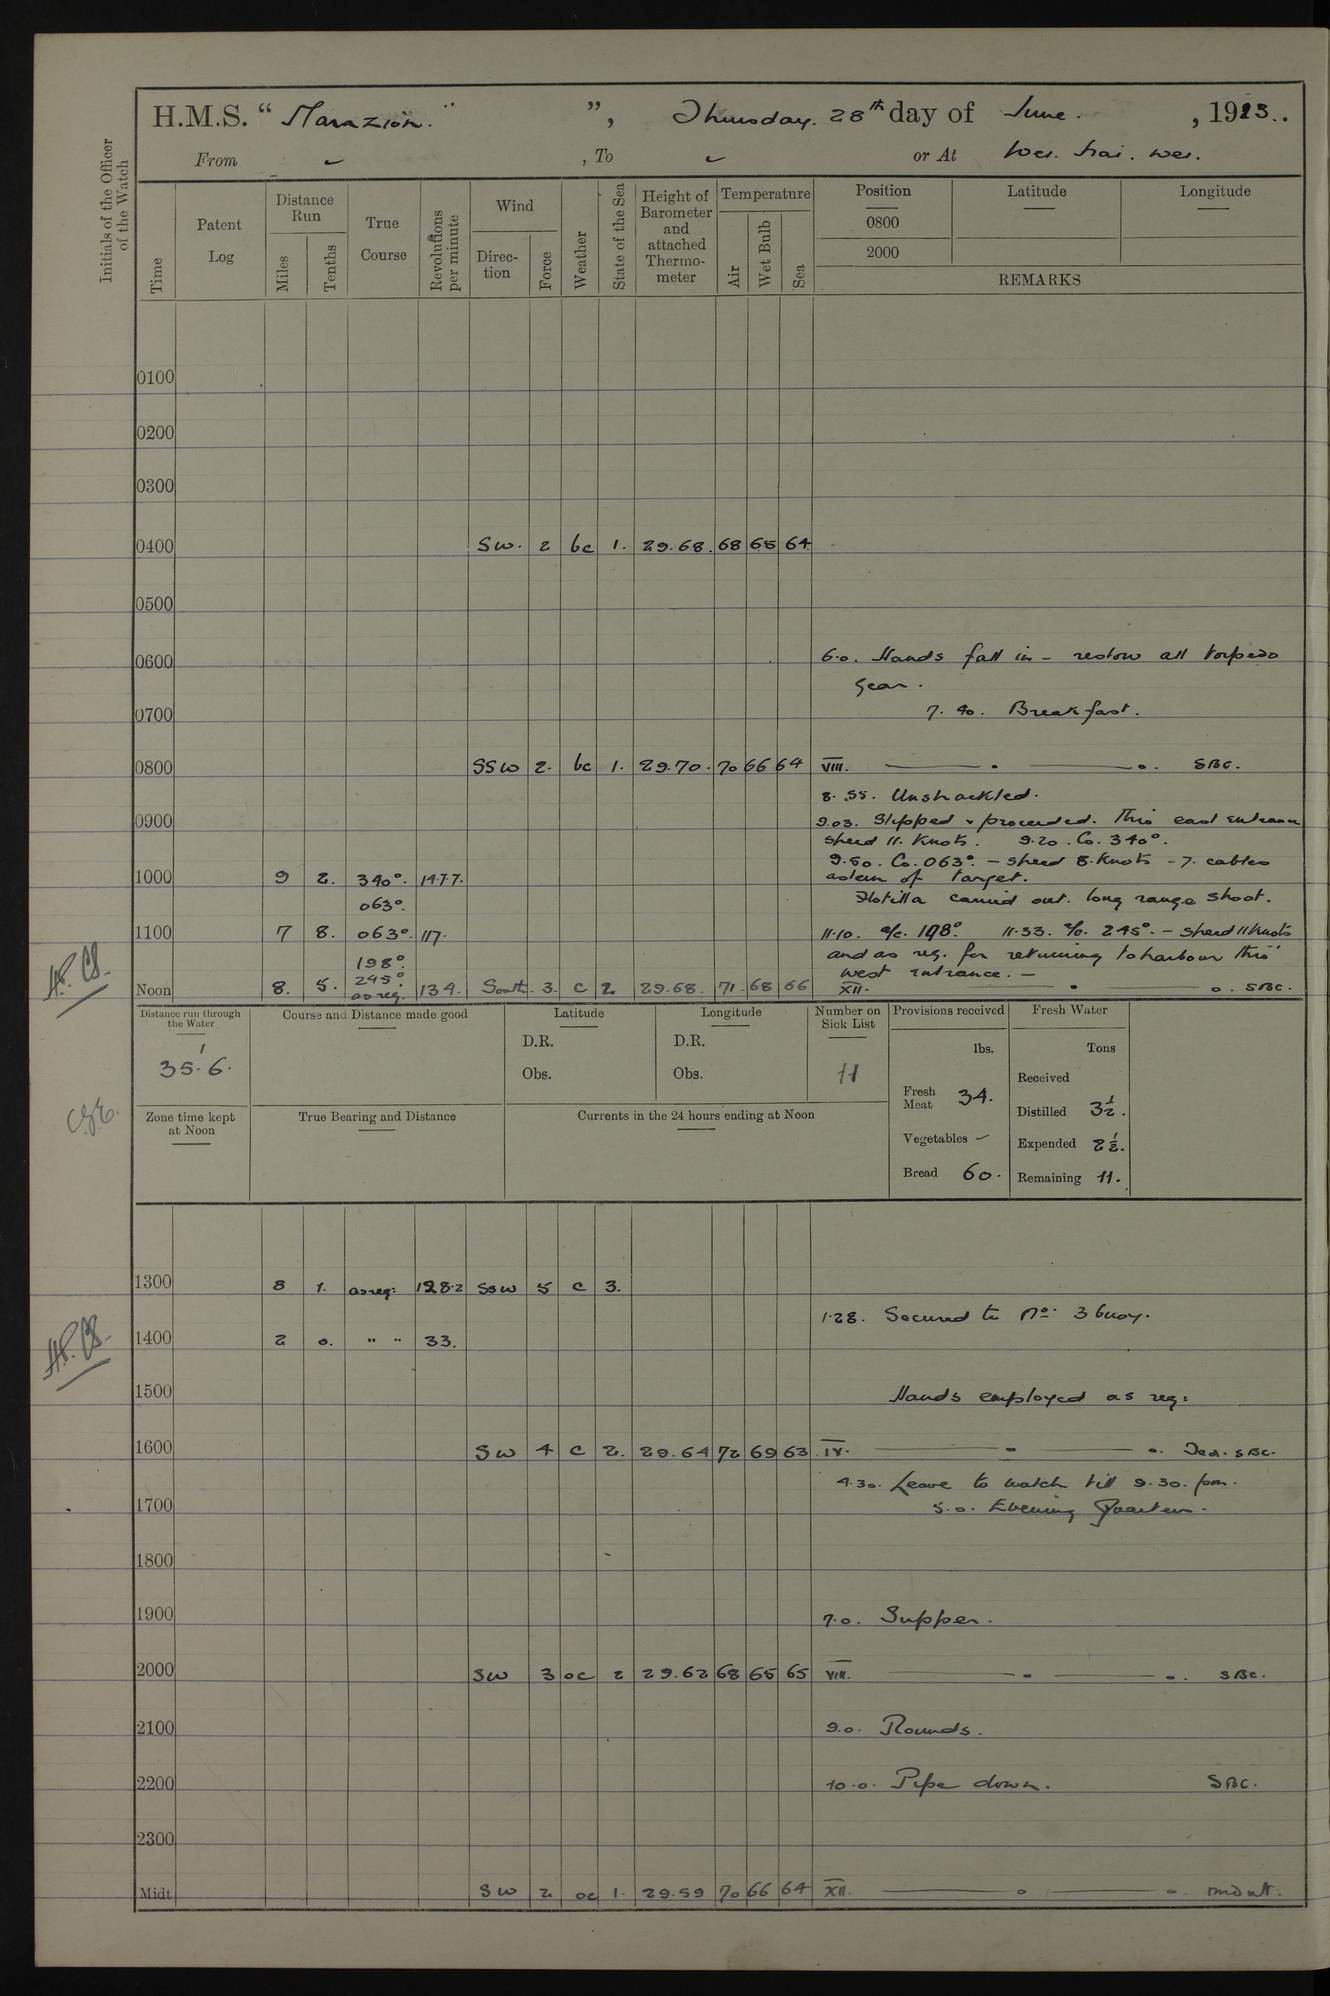 H.M.S. " Marazion. ", Thursday. 28th day of June. , 1923..
From ✓ , To ✓ or At Wei. hai. wei.
Initials of the Officer of the Watch
Time
Patent Log
Distance Run
Miles
Tenths
True Course
Revolutions per minute
Wind
Direction
Force
Weather
State of the Sea
Height of Barometer and attached Thermometer
Temperature
Air
Wet Bulb
Sea
Position Latitude Longitude
0800
2000
REMARKS
0100
0200
0300
0400 SW. 2 bc 1. 29.68. 68 65 64
0500
0600 6.0. Hands fall in - restow all torpedo
gear.
0700 7.40. Breakfast.
0800 SSW 2. bc 1. 29.70. 70 66 64 VIII. SBC.
8.55. Unshackled.
0900 9.03. Slipped & proceeded. Thro east entrance
speed 11. Knots. 9.20. Co. 340°.
9.50. Co. 063°. - speed 8. Knots - 7. cables
1000 9 2. 340°. 147.7. astern of target.
063°. Flotilla carried out. long range shoot.
1100 7 8. 063°. 117. 11.10. a/c. 198°. 11.33. a/c. 245°. - speed 11 knots
198°. and as req. for returning to harbour thro'
245°. west entrance. -
Noon 8. 5. as req. 134. South. 3. c 2 29.68. 71. 68 66 XII. SBC.
Distance run through the Water
35'.6.
Course and Distance made good
Latitude
D.R.
Obs.
Longitude
D.R.
Obs.
Number on Sick List
11
Provisions received
lbs.
Fresh Meat 34.
Vegetables -
Bread 60.
Fresh Water
Tons
Received
Distilled 3½.
Expended 2½.
Remaining 11.
Zone time kept at Noon
True Bearing and Distance
Currents in the 24 hours ending at Noon
1300 8 1. as req: 128.2 SSW 5 c 3.
1.28. Secured to No. 3 buoy.
1400 2 0. " " 33.
1500 Hands employed as req:
1600 SW 4 c 2. 29.64 72 69 63 IV. SBC.
4.30. Leave to watch till 9.30. pm.
1700 5.0. Evening Quarters.
1800
1900 7.0. Supper.
2000 SW 3 oc 2 29.62 68 65 65 VIII. SBC.
2100 9.0. Rounds.
2200 10.0. Pipe down. SBC.
2300
Midt SW 2 oc 1. 29.59 70 66 64 XII.